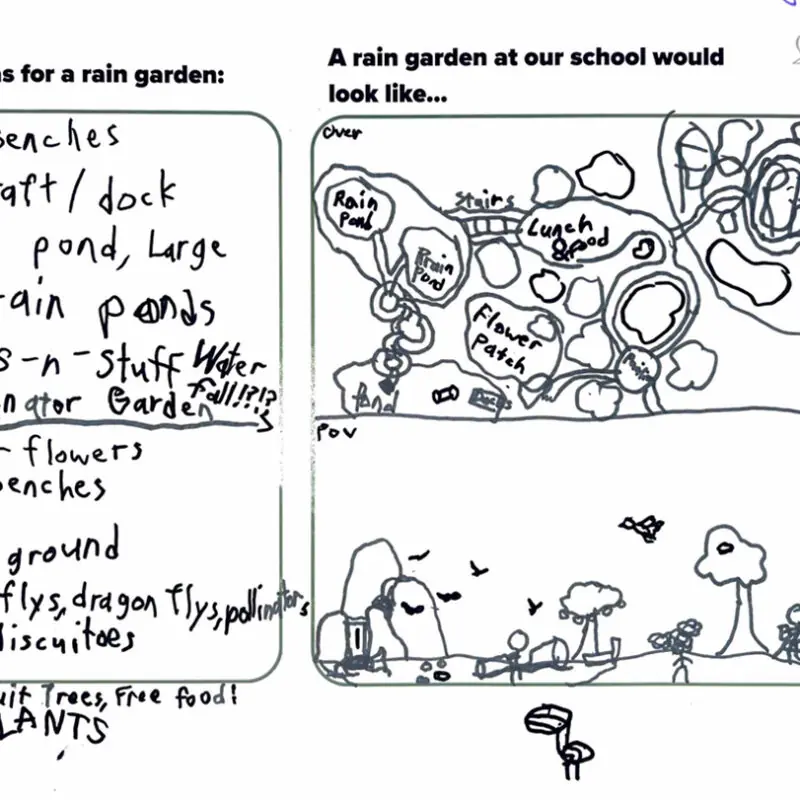 s for a rain garden:
enches
aft / dock
pond, Large
rain ponds
s-n-stuff Water
fall!?!?
nator Garden
flowers
enches
ground
flys, dragon flys, pollinators
iscuitoes
uit Trees, Free food!
LANTS
A rain garden at our school would
look like...
Over
Rain
Pond
Stairs
Lunch
& food
Rain
Pond
Flower
Patch
Pond
POV